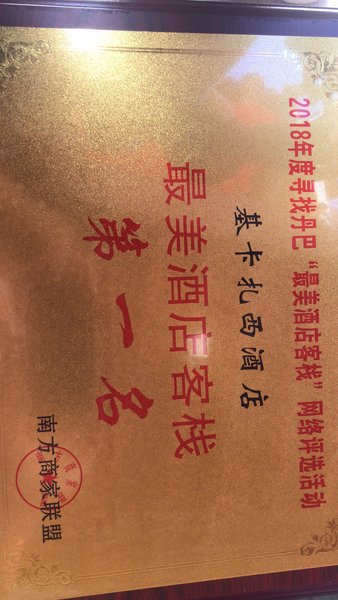 2018年度寻找丹巴“最美酒店客栈”网络评选活动
基卡扎西酒店
最美酒店客栈
第一名
南方商家联盟